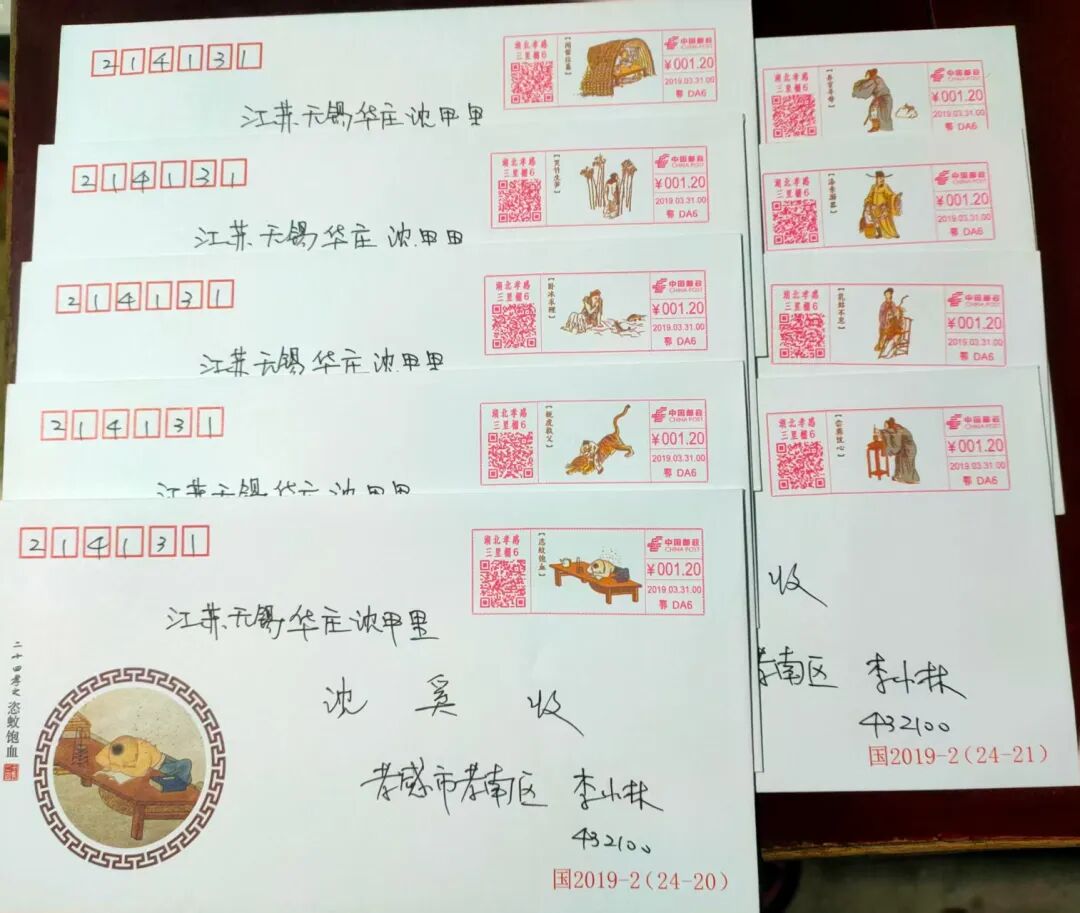 214131
湖北孝感
三里棚6
【闻雷泣墓】
中国邮政
CHINA POST
¥001.20
2019.03.31.00
鄂 DA6
江苏无锡华庄沈甲里
214131
湖北孝感
三里棚6
【哭竹生笋】
中国邮政
CHINA POST
¥001.20
2019.03.31.00
鄂 DA6
江苏无锡华庄沈甲里
214131
湖北孝感
三里棚6
【卧冰求鲤】
中国邮政
CHINA POST
¥001.20
2019.03.31.00
鄂 DA6
江苏无锡华庄沈甲里
214131
湖北孝感
三里棚6
【扼虎救父】
中国邮政
CHINA POST
¥001.20
2019.03.31.00
鄂 DA6
江苏无锡华庄沈甲里
214131
湖北孝感
三里棚6
【恣蚊饱血】
中国邮政
CHINA POST
¥001.20
2019.03.31.00
鄂 DA6
江苏无锡华庄沈甲里
二十四孝之 恣蚊饱血
沈奚 收
孝感市孝南区 李小林
432100
国2019-2(24-20)
湖北孝感
三里棚6
【弃官寻母】
中国邮政
CHINA POST
¥001.20
2019.03.31.00
鄂 DA6
湖北孝感
三里棚6
【涤亲溺器】
中国邮政
CHINA POST
¥001.20
2019.03.31.00
鄂 DA6
湖北孝感
三里棚6
【乳姑不怠】
中国邮政
CHINA POST
¥001.20
2019.03.31.00
鄂 DA6
湖北孝感
三里棚6
【尝粪忧心】
中国邮政
CHINA POST
¥001.20
2019.03.31.00
鄂 DA6
收
孝南区 李小林
432100
国2019-2(24-21)